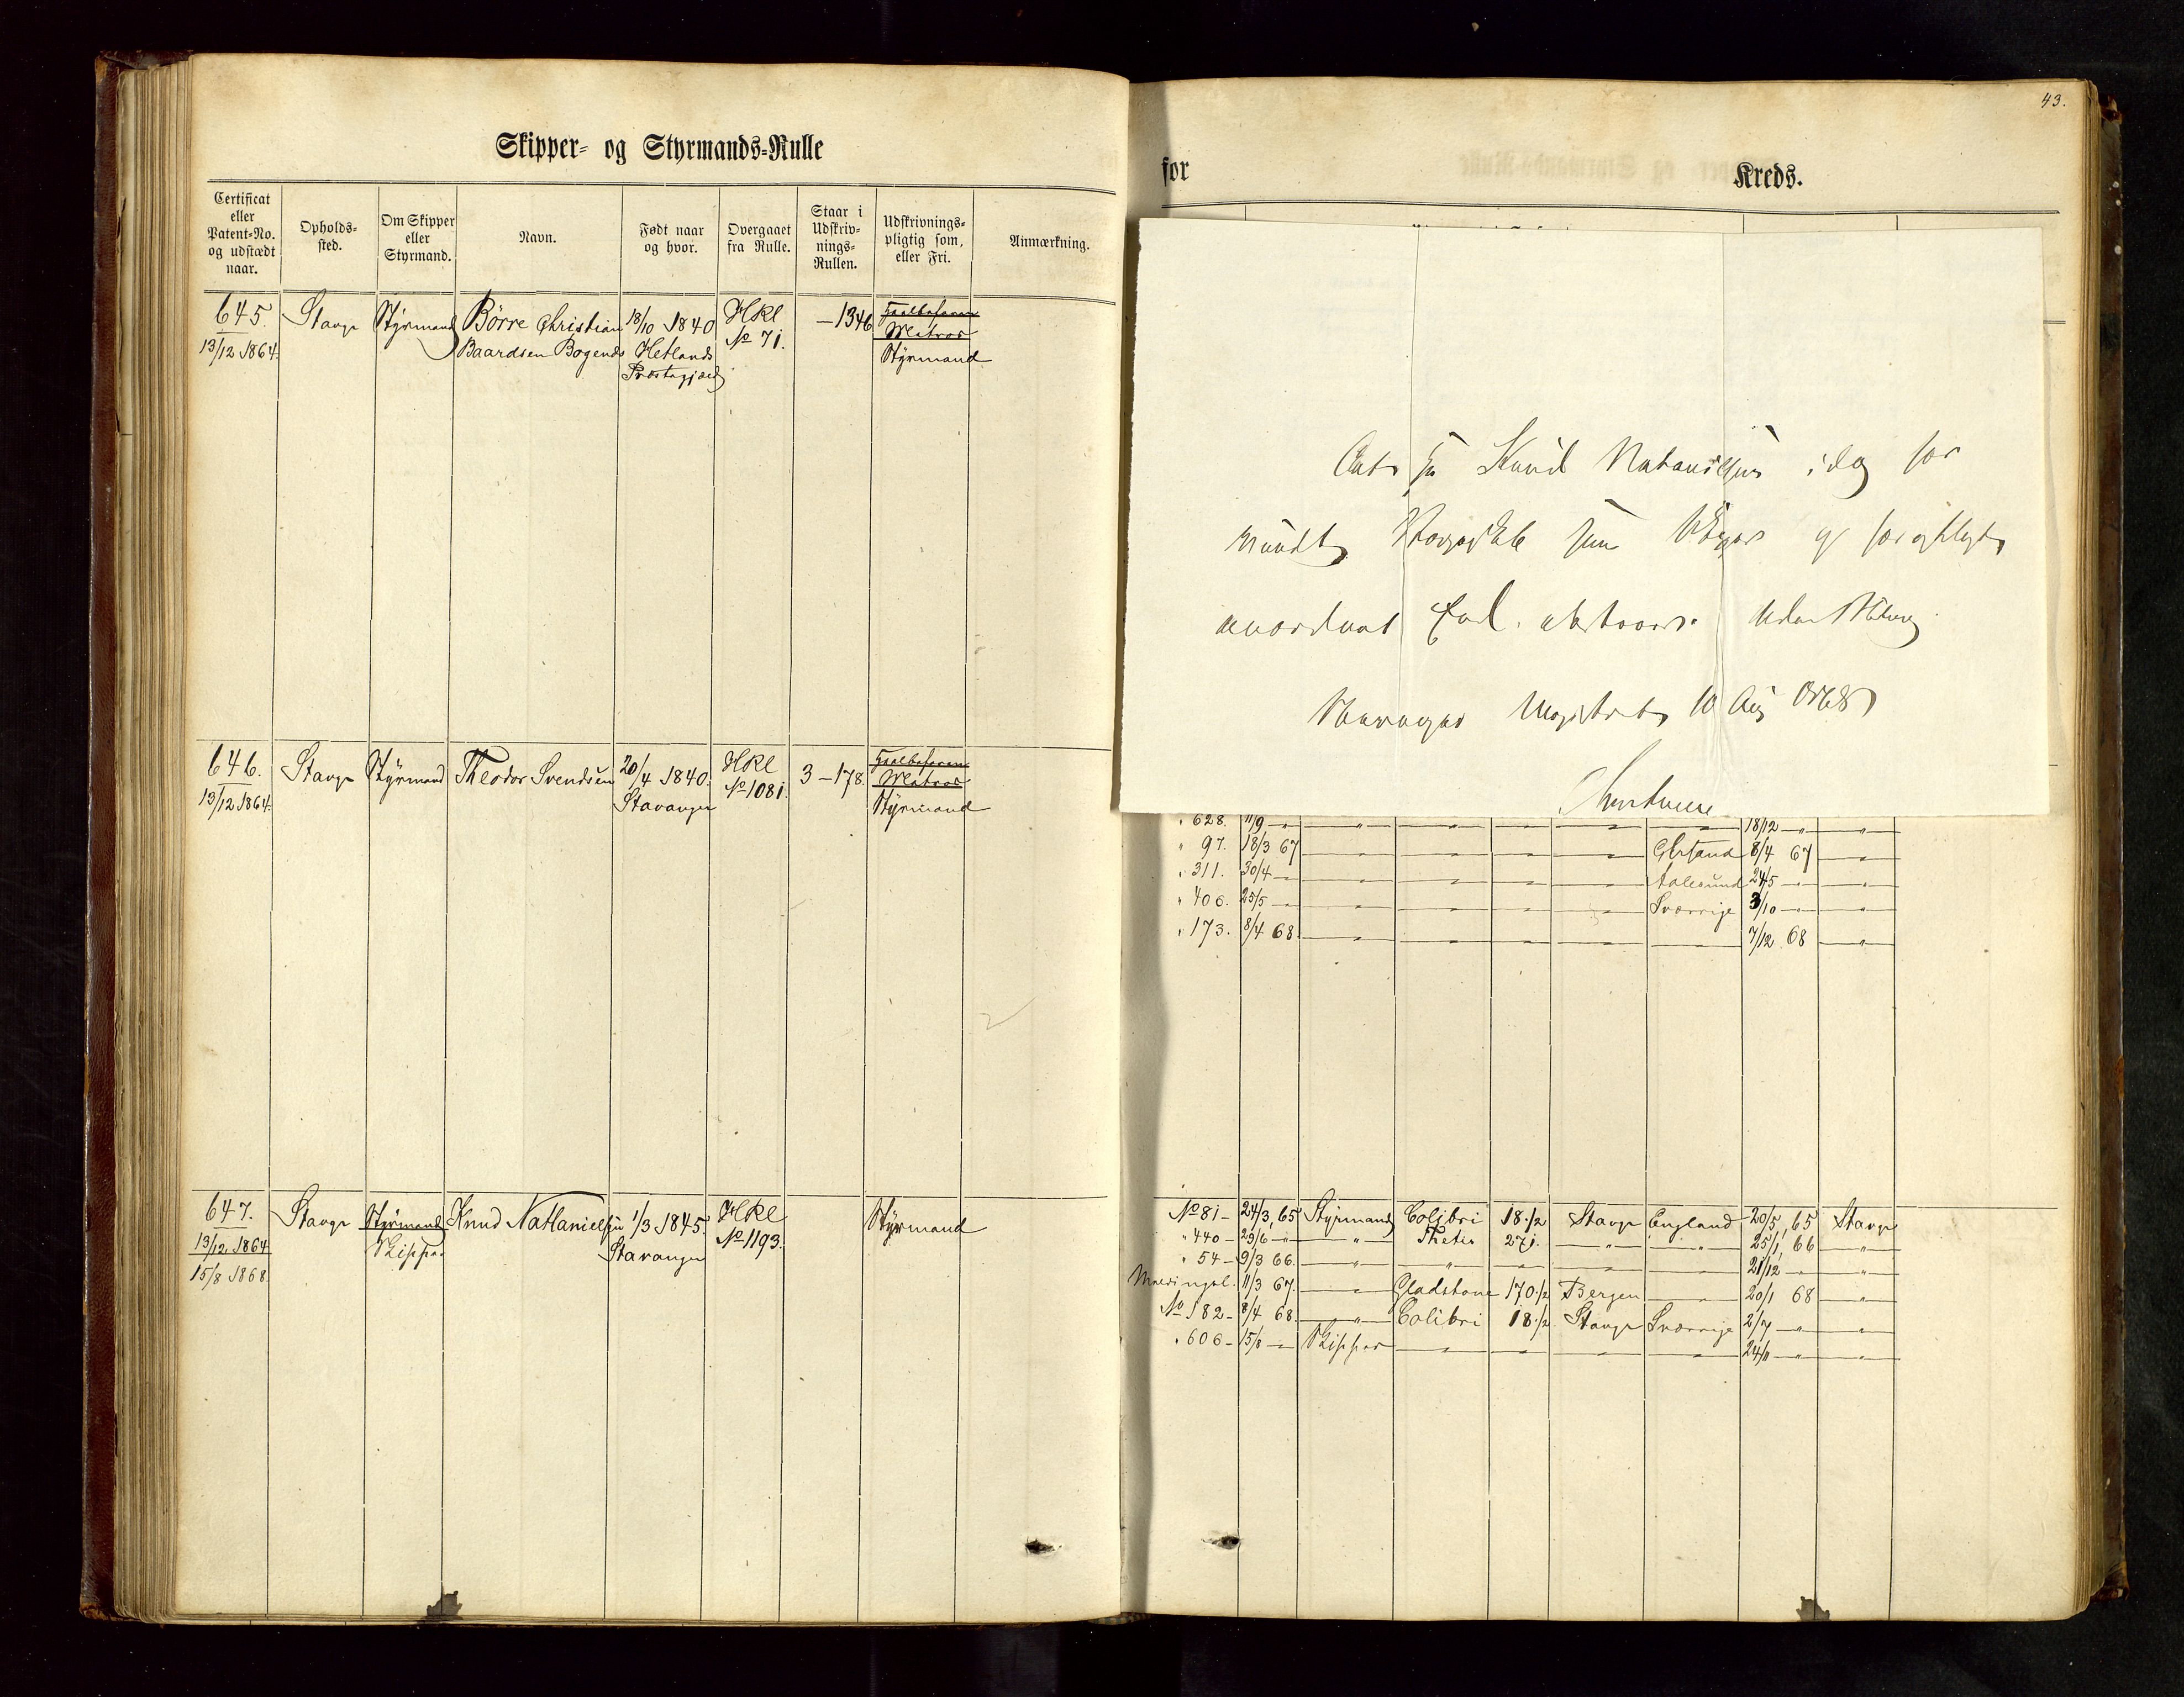 Skipper- og Styrmands-Rulle
Certificat eller Patent-No. og udstædt naar.
Opholds-sted.
Om Skipper eller Styrmand.
Navn.
Født naar og hvor.
Overgaaet fra Rulle.
Staar i Udskriv-nings-Rullen.
Udskrivnings-pligtig som, eller Fri.
Anmærkning.
645. Stavgr Styrmand Børre Christian 18/10 1840 HRl — 1346 Matros
13/12 1864. Baardsen Bogends Hetlands No 71. Styrmand
Præstegjæld
646. Stavgr Styrmand Theodor Svendsen 20/4 1840. HRl 3 — 178. Matros
13/12 1864. Stavanger No 1081. Styrmand
647. Stavgr Styrmand Knud Nathanielsen 1/3 1845. HRl Styrmand
13/12 1864 Skipper Stavanger No 1193.
15/8 1868.
43.
for Kreds.
At Knud Natanielsen idag for
som Skipper og
anordnet Ed.
Stavanger Magistrat 10 Aug 1868
" 628. 11/9 — " — " — " — " — " — " 18/12 — " — "
" 97. 18/3 67 — " — " — " — " — Chrsand 8/4 67 — "
" 311. 30/4 — " — " — " — " — " — Aalesund 24/5 — " — "
" 406. 25/5 — " — " — " — " — " — Sverrige 3/10 — " — "
" 173. 8/4 68. — " — " — " — " — " 7/12 68 — "
No 81 — 24/3, 65 Styrmand Colibri 18 1/2 Stavgr England 20/5, 65 Stavgr
" 440 — 29/6 — " — " Thetis 271. — " — " 25/1, 66 — "
" 54 — 9/3 66. — " — " — " — " — " 21/12 — " — "
11/3 67. — " Gladstone 170 1/2 Bergen — " 20/1 68 — "
No 182 — 8/4 68. — " Colibri 18 1/2 Stavgr Sverrige 2/7 — " — "
" 606 — 15/8 — " Skipper — " — " — " — " 24/11 — " — "